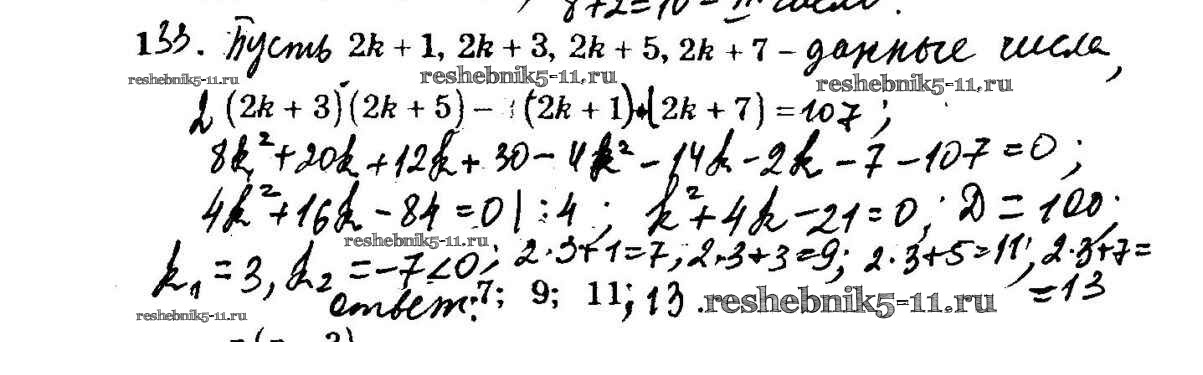 8+2=10 – II число.
133. Пусть 2k + 1, 2k + 3, 2k + 5, 2k + 7 – данные числа,
reshebnik5-11.ru reshebnik5-11.ru reshebnik5-11.ru
2(2k + 3)(2k + 5) – (2k + 1)·(2k + 7) = 107;
8k²+20k+12k+30–4k²–14k–2k–7–107=0;
4k²+16k–84=0|:4; k²+4k–21=0; D=100;
reshebnik5-11.ru
k₁=3, k₂=–7<0; 2·3+1=7; 2·3+3=9; 2·3+5=11; 2·3+7=
=13
ответ: 7; 9; 11; 13. reshebnik5-11.ru
reshebnik5-11.ru